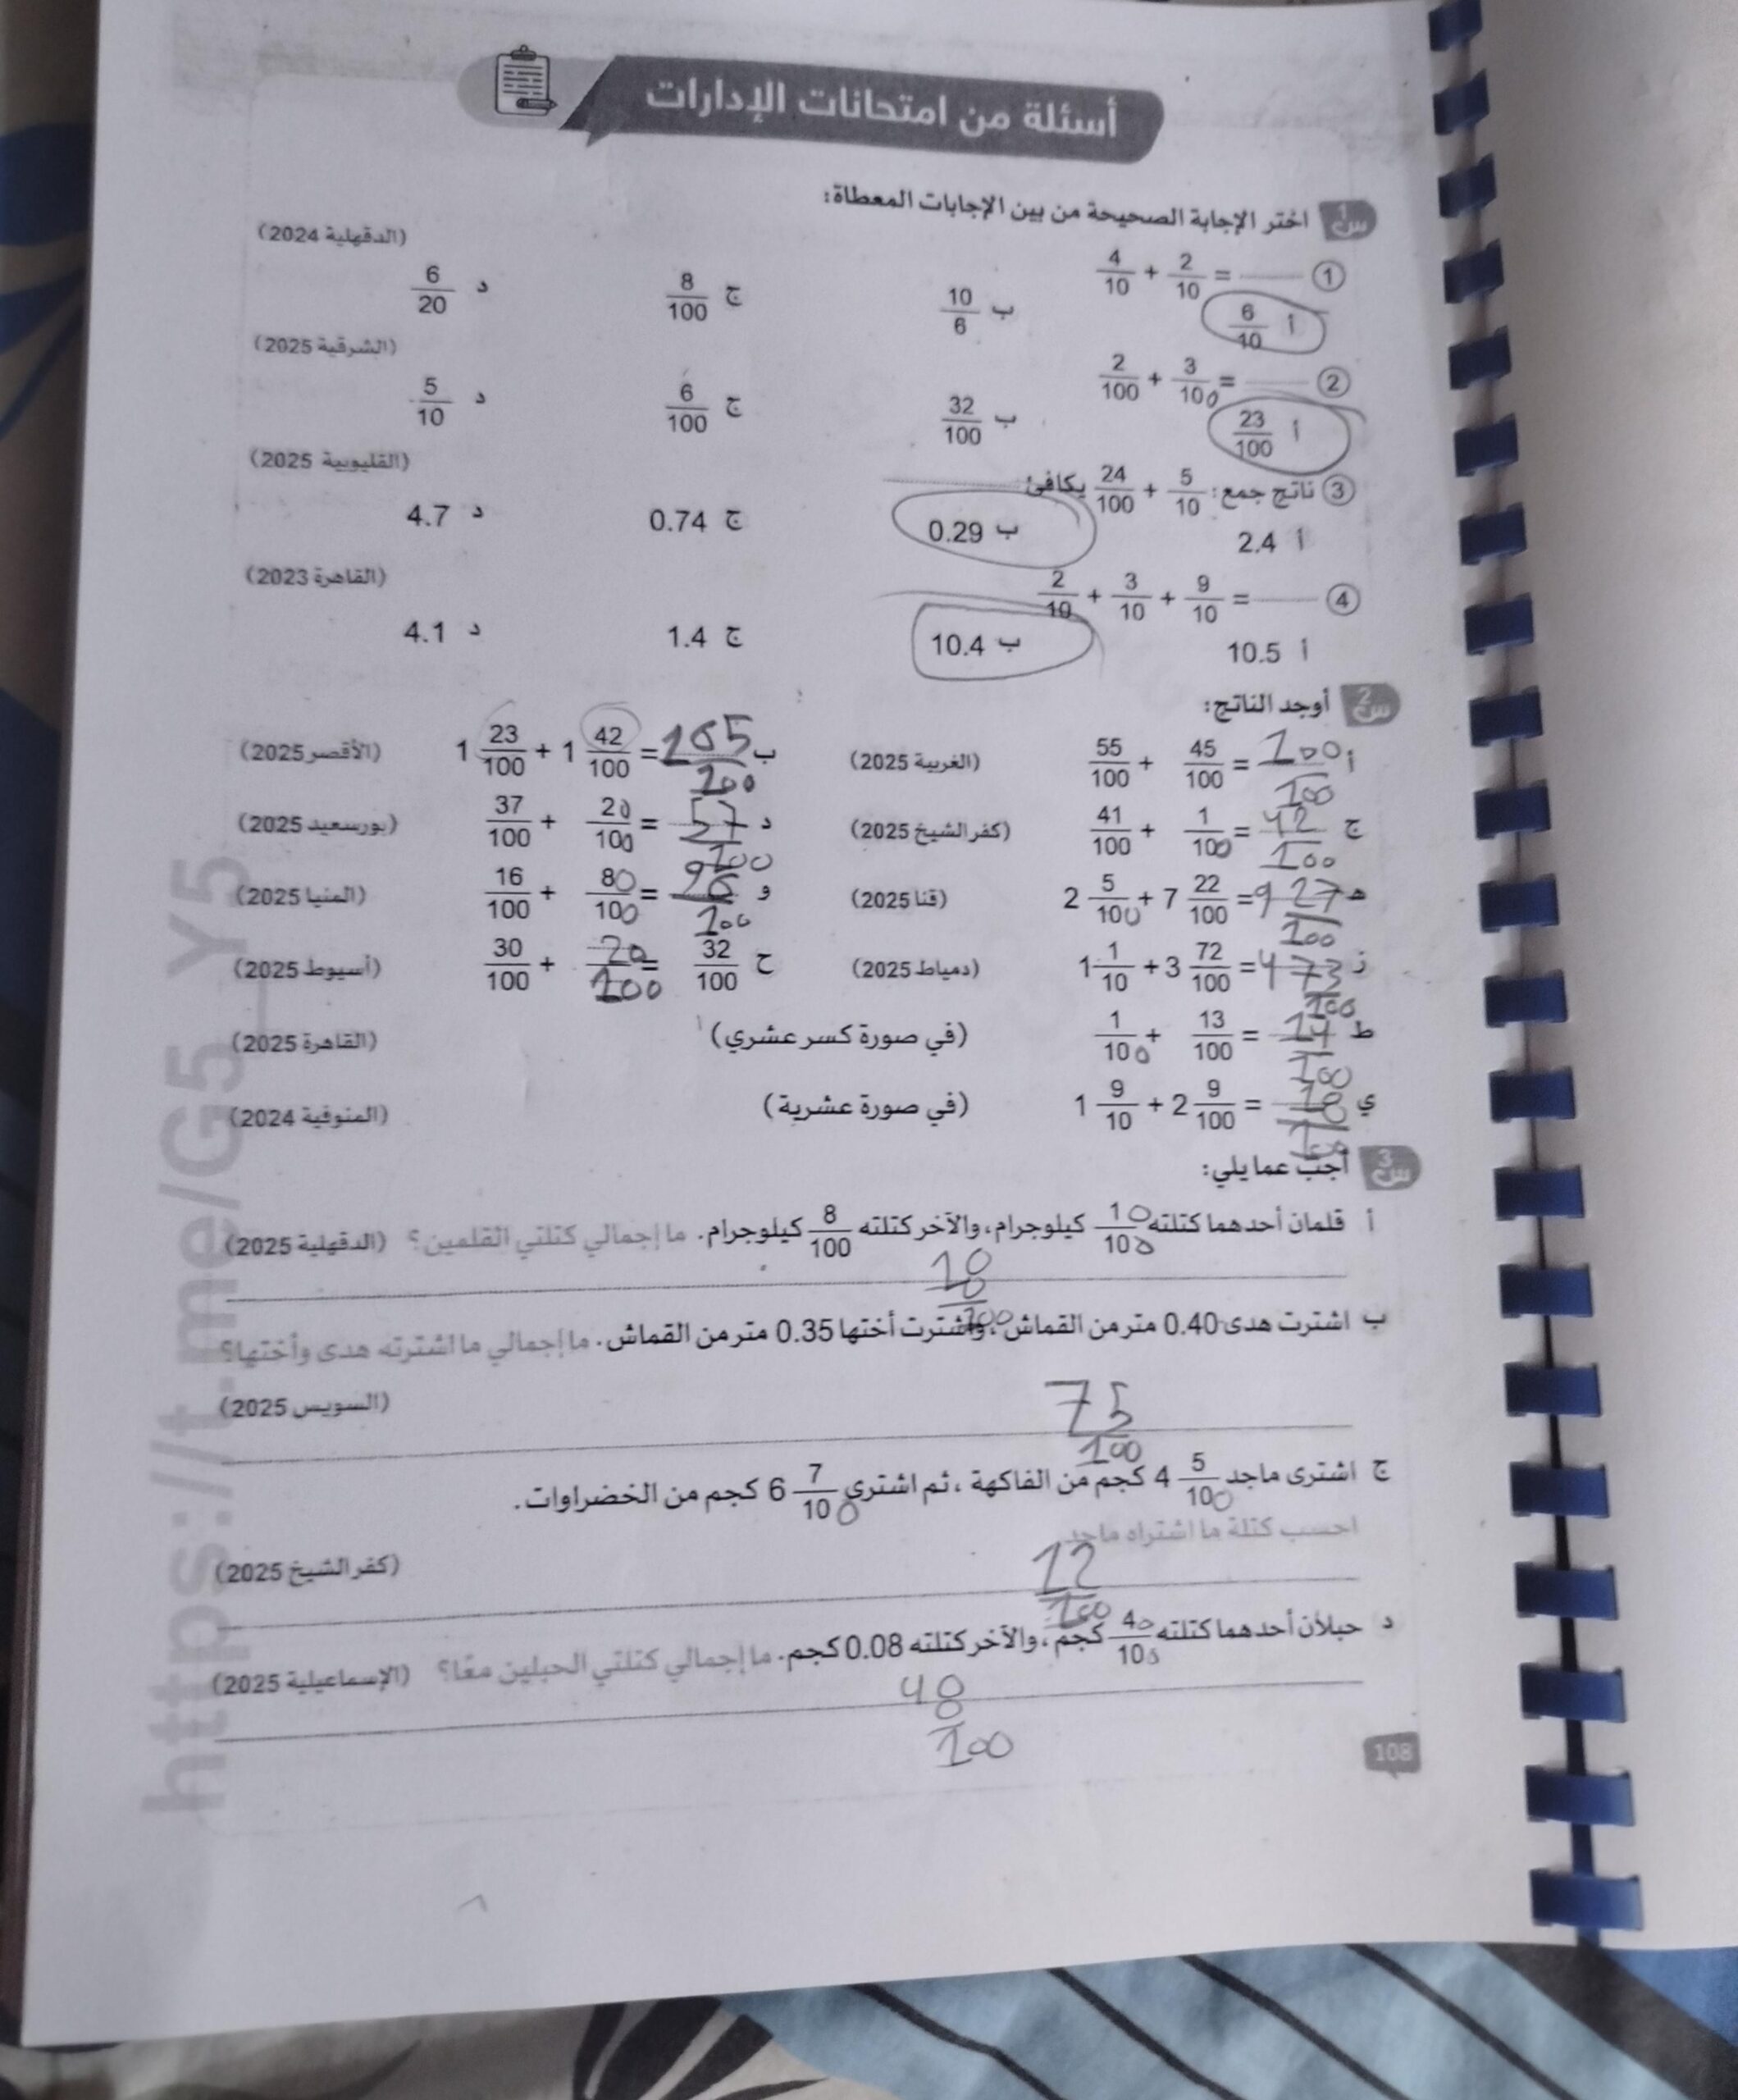 أسئلة من امتحانات الإدارات
س1 اختر الإجابة الصحيحة من بين الإجابات المعطاة:
① 4/10 + 2/10 = ........ (الدقهلية 2024)
أ 6/10 ب 10/6 ج 8/100 د 6/20
② 2/100 + 3/100 = ........ (الشرقية 2025)
أ 23/100 ب 32/100 ج 6/100 د 5/10
③ ناتج جمع: 24/100 + 5/10 يكافئ ........ (القليوبية 2025)
أ 2.4 ب 0.29 ج 0.74 د 4.7
④ 2/10 + 3/10 + 9/10 = ........ (القاهرة 2023)
أ 10.5 ب 10.4 ج 1.4 د 4.1
س2 أوجد الناتج:
أ 55/100 + 45/100 = 100/100 (الغربية 2025) ب 1 23/100 + 1 42/100 = 165/100 (الأقصر 2025)
ج 41/100 + 1/100 = 42/100 (كفر الشيخ 2025) د 37/100 + 20/100 = 57/100 (بورسعيد 2025)
هـ 2 5/100 + 7 22/100 = 9 27/100 (قنا 2025) و 16/100 + 80/100 = 96/100 (المنيا 2025)
ز 1 1/10 + 3 72/100 = 4 73/100 (دمياط 2025) ح 30/100 + 20/100 = 32/100 (أسيوط 2025)
ط 1/100 + 13/100 = 14/100 (في صورة كسر عشري) (القاهرة 2025)
ي 1 9/10 + 2 9/100 = 18/100 (في صورة عشرية) (المنوفية 2024)
س3 أجب عما يلي:
أ قلمان أحدهما كتلته 10/100 كيلوجرام، والآخر كتلته 8/100 كيلوجرام. ما إجمالي كتلتي القلمين؟ (الدقهلية 2025)
18/100
ب اشترت هدى 0.40 متر من القماش، واشترت أختها 0.35 متر من القماش. ما إجمالي ما اشترته هدى وأختها؟
(السويس 2025)
75/100
ج اشترى ماجد 4 5/100 كجم من الفاكهة، ثم اشترى 6 7/100 كجم من الخضراوات.
احسب كتلة ما اشتراه ماجد.
(كفر الشيخ 2025)
12/100
د حبلان أحدهما كتلته 40/100 كجم، والآخر كتلته 0.08 كجم. ما إجمالي كتلتي الحبلين معًا؟ (الإسماعيلية 2025)
48/100
108
https://t.me/G5_Y5